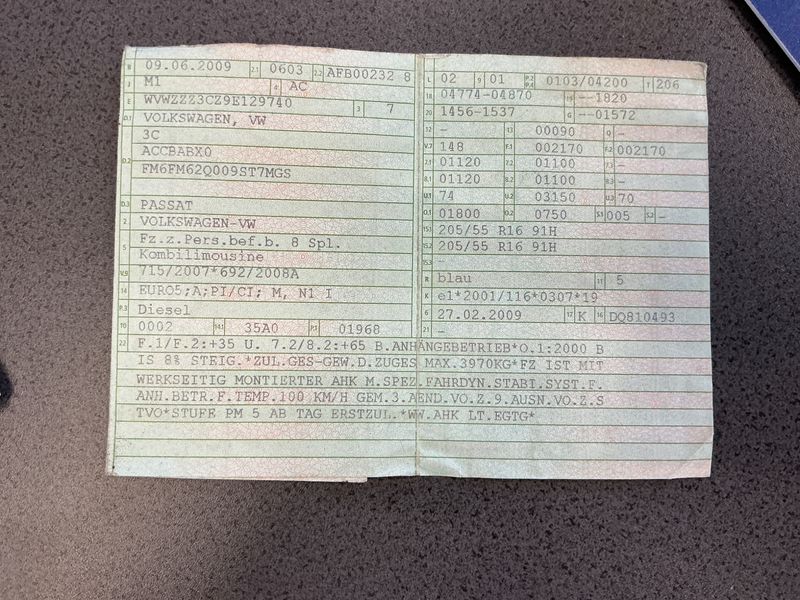 B 09.06.2009 2.1 0603 2.2 AFB00232 8
J M1 4 AC
E WVWZZZ3CZ9E129740 3 7
D.1 VOLKSWAGEN, VW
3C
D.2 ACCBABX0
FM6FM62Q009ST7MGS
D.3 PASSAT
2 VOLKSWAGEN-VW
5 Fz.z.Pers.bef.b. 8 Spl.
Kombilimousine
V.9 715/2007*692/2008A
14 EURO5;A;PI/CI; M, N1 I
P.3 Diesel
10 0002 14.1 35A0 P.1 01968
L 02 9 01 P.2 P.4 0103/04200 T 206
18 04774-04870 19 --1820
20 1456-1537 G --01572
12 - 13 00090 Q -
V.7 148 F.1 002170 F.2 002170
7.1 01120 7.2 01100 7.3 -
8.1 01120 8.2 01100 8.3 -
U.1 74 U.2 03150 U.3 70
O.1 01800 O.2 0750 S.1 005 S.2 -
15.1 205/55 R16 91H
15.2 205/55 R16 91H
15.3 -
R blau 11 5
K e1*2001/116*0307*19
6 27.02.2009 17 K 16 DQ810493
21 -
22 F.1/F.2:+35 U. 7.2/8.2:+65 B.ANHÄNGEBETRIEB*O.1:2000 B
IS 8% STEIG.*ZUL.GES-GEW.D.ZUGES MAX.3970KG*FZ IST MIT
WERKSEITIG MONTIERTER AHK M.SPEZ.FAHRDYN.STABI.SYST.F.
ANH.BETR.F.TEMP.100 KM/H GEM.3.AEND.VO.Z.9.AUSN.VO.Z.S
TVO*STUFE PM 5 AB TAG ERSTZUL.*WW.AHK LT.EGTG*